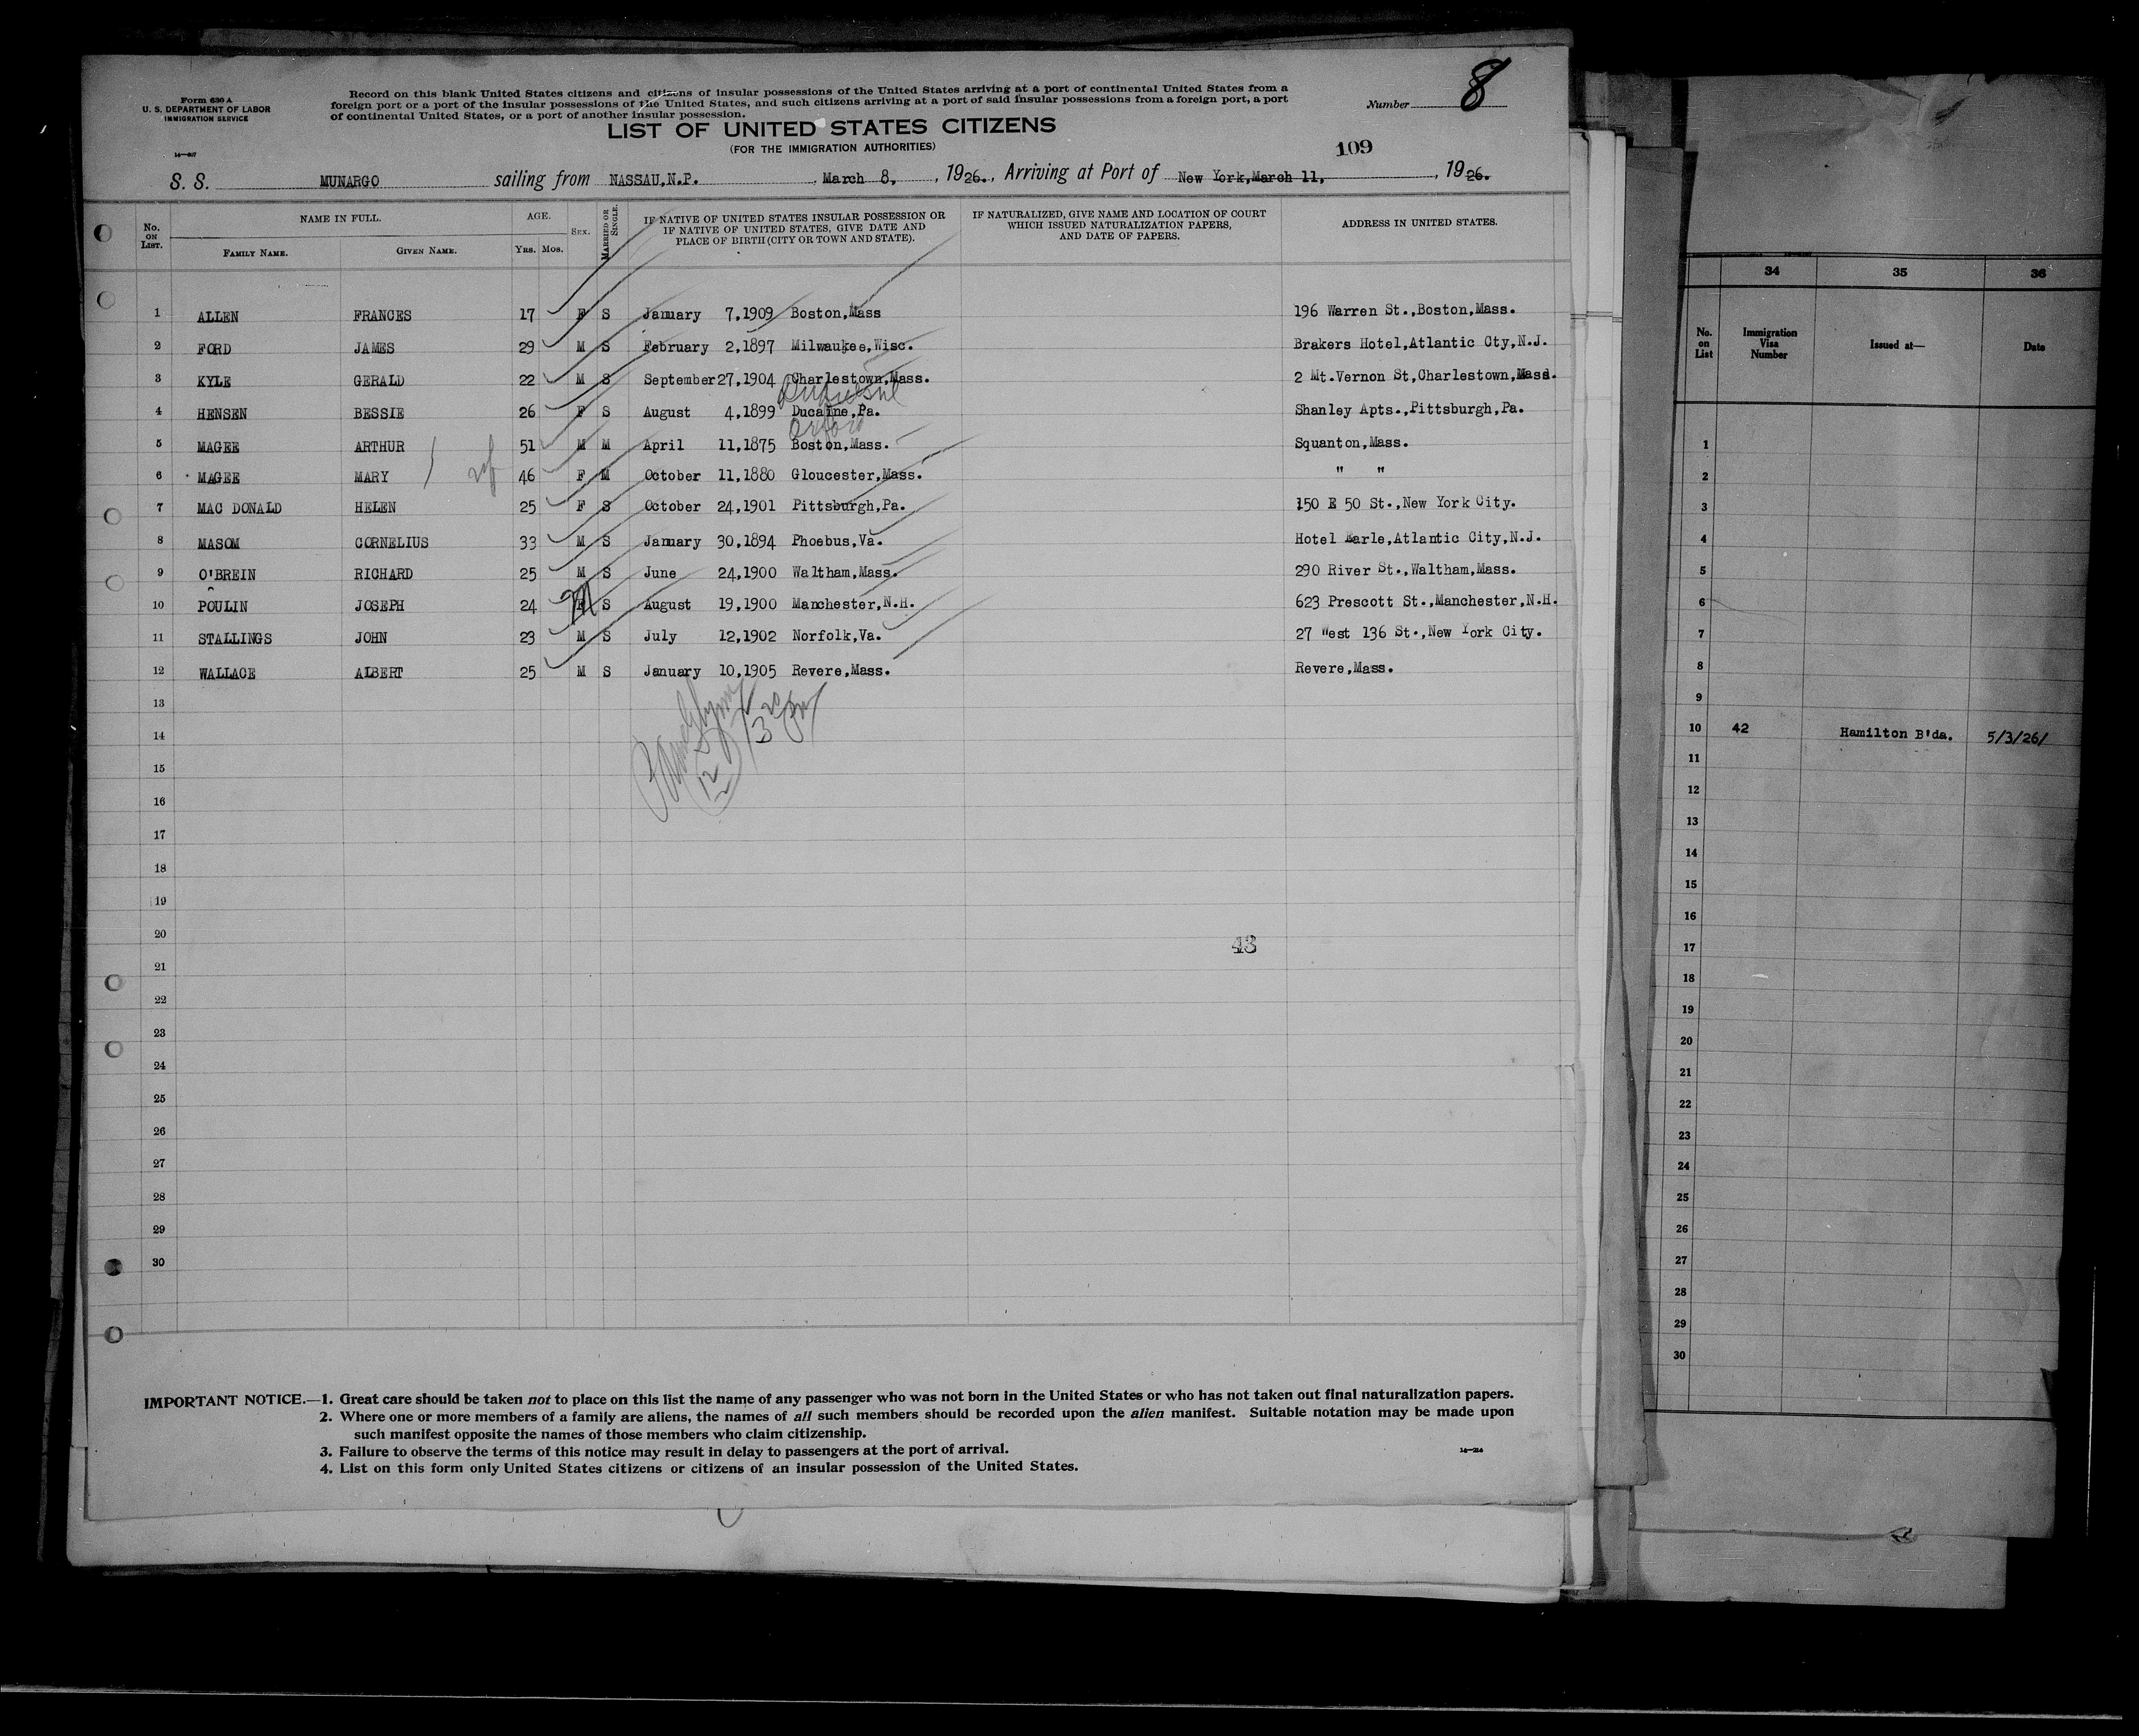 Form 630 A
U. S. DEPARTMENT OF LABOR
IMMIGRATION SERVICE
Record on this blank United States citizens and citizens of insular possessions of the United States arriving at a port of continental United States from a
foreign port or a port of the insular possessions of the United States, and such citizens arriving at a port of said insular possessions from a foreign port, a port
of continental United States, or a port of another insular possession.
Number 8
LIST OF UNITED STATES CITIZENS
(FOR THE IMMIGRATION AUTHORITIES)
109
S. S. MUNARGO sailing from NASSAU,N.P. March 8, , 1926., Arriving at Port of New York,March 11, , 1926.
No. ON LIST. NAME IN FULL. FAMILY NAME. GIVEN NAME. AGE. YRS. MOS. SEX. MARRIED OR SINGLE. IF NATIVE OF UNITED STATES INSULAR POSSESSION OR IF NATIVE OF UNITED STATES, GIVE DATE AND PLACE OF BIRTH (CITY OR TOWN AND STATE). IF NATURALIZED, GIVE NAME AND LOCATION OF COURT WHICH ISSUED NATURALIZATION PAPERS, AND DATE OF PAPERS. ADDRESS IN UNITED STATES.
1 ALLEN FRANCES 17 F S January 7,1909 Boston,Mass 196 Warren St.,Boston,Mass.
2 FORD JAMES 29 M S February 2,1897 Milwaukee,Wisc. Brakers Hotel,Atlantic Cty,N.J.
3 KYLE GERALD 22 M S September27,1904 Charlestown,Mass. 2 Mt.Vernon St,Charlestown,Mass.
4 HENSEN BESSIE 26 F S August 4,1899 Ducaine,Pa. Shanley Apts.,Pittsburgh,Pa.
5 MAGEE ARTHUR 51 M M April 11,1875 Boston,Mass. Squanton,Mass.
6 MAGEE MARY 46 F M October 11,1880 Gloucester,Mass. " "
7 MAC DONALD HELEN 25 F S October 24,1901 Pittsburgh,Pa. 150 E 50 St.,New York City.
8 MASOM CORNELIUS 33 M S January 30,1894 Phoebus,Va. Hotel Marle,Atlantic City,N.J.
9 O'BREIN RICHARD 25 M S June 24,1900 Waltham,Mass. 290 River St.,Waltham,Mass.
10 POULIN JOSEPH 24 M S August 19,1900 Manchester,N.H. 623 Prescott St.,Manchester,N.H.
11 STALLINGS JOHN 23 M S July 12,1902 Norfolk,Va. 27 West 136 St.,New York City.
12 WALLACE ALBERT 25 M S January 10,1905 Revere,Mass. Revere,Mass.
13
14
15
16
17
18
19
20
43
21
22
23
24
25
26
27
28
29
30
IMPORTANT NOTICE.—1. Great care should be taken not to place on this list the name of any passenger who was not born in the United States or who has not taken out final naturalization papers.
2. Where one or more members of a family are aliens, the names of all such members should be recorded upon the alien manifest. Suitable notation may be made upon
such manifest opposite the names of those members who claim citizenship.
3. Failure to observe the terms of this notice may result in delay to passengers at the port of arrival.
4. List on this form only United States citizens or citizens of an insular possession of the United States.
34 35 36
No. on List Immigration Visa Number Issued at— Date
1
2
3
4
5
6
7
8
9
10 42 Hamilton B'da. 5/3/26/
11
12
13
14
15
16
17
18
19
20
21
22
23
24
25
26
27
28
29
30